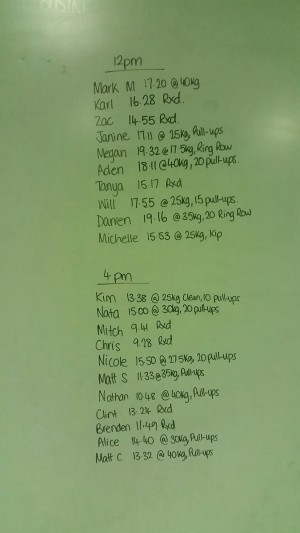 12pm
Mark M 17.20 @ 40kg
Karl 16.28 Rxd.
Zac 14.55 Rxd.
Janine 17.11 @ 25kg, Pull-ups
Megan 19.32 @ 17.5kg, Ring Row
Aden 18.11 @ 40kg, 20 pull-ups.
Tanya 15.17 Rxd
Will 17.55 @ 25kg, 15 pull-ups
Darren 19.16 @ 35kg, 20 Ring Row
Michelle 15.53 @ 25kg, Kip
4pm
Kim 13.38 @ 25kg Clean, 10 pull-ups
Nata 15.00 @ 30kg, 20 pull-ups
Mitch 9.41 Rxd
Chris 9.28 Rxd
Nicole 15.50 @ 27.5kg, 20 pull-ups
Matt S 11.33 @ 35kg, Pull-ups
Nathan 10.48 @ 40kg, Pull-ups
Clint 13.24 Rxd
Brenden 11.49 Rxd
Alice 14.40 @ 30kg, Pull-ups
Matt C 13.32 @ 40kg, Pull-ups